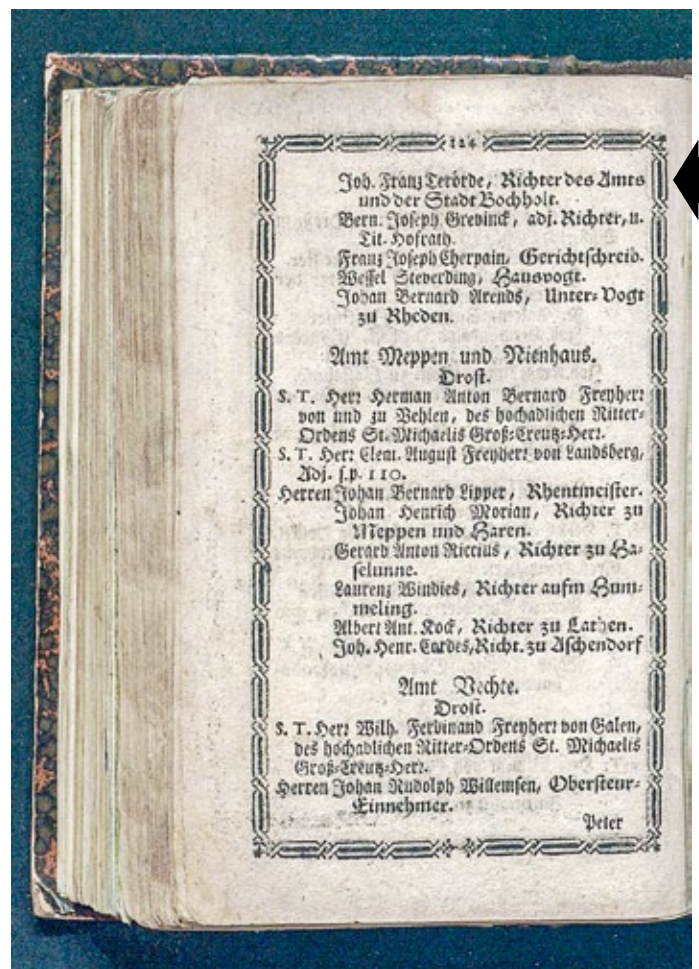 124
Joh. Franz Terörde, Richter des Amts
und der Stadt Bochholt.
Bern. Joseph Grevinck, adj. Richter, u.
Tit. Hofrath.
Franz Joseph Cherpain, Gerichtschreib.
Wessel Steverding, Hausvogt.
Johan Bernard Arends, Unter-Vogt
zu Rheden.
Amt Meppen und Nienhaus.
Drost.
S. T. Herr Herman Anton Bernard Freyherr
von und zu Vehlen, des hochadlichen Ritter-
Ordens St. Michaelis Groß-Creutz-Herr.
S. T. Herr Clem. August Freyherr von Landsberg,
Adj. s.p. 110.
Herren Johan Bernard Lipper, Rhentmeister.
Johan Henrich Morian, Richter zu
Meppen und Haren.
Gerard Anton Riccius, Richter zu Ha-
selunne.
Laurenz Windies, Richter aufm Hum-
meling.
Albert Ant. Kock, Richter zu Lathen.
Joh. Henr. Cordes, Richt. zu Aschendorf
Amt Vechte.
Drost.
S. T. Herr Wilh. Ferdinand Freyherr von Galen,
des hochadlichen Ritter-Ordens St. Michaelis
Groß-Creutz-Herr.
Herren Johan Rudolph Willemsen, Obersteur-
Einnehmer.
Peter